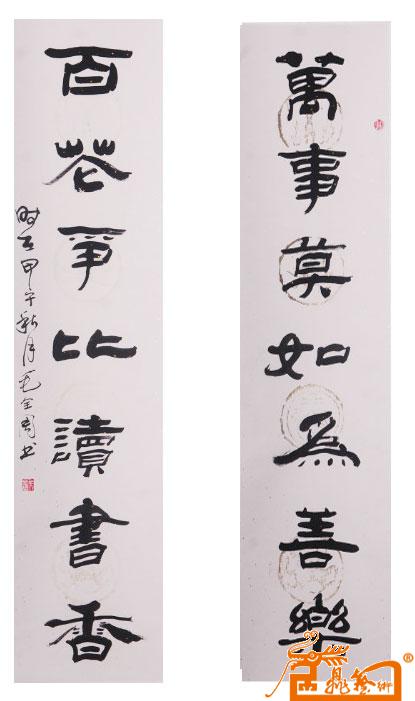 萬事莫如為善樂
百花爭比讀書香
時在甲午秋月毛全周书
®